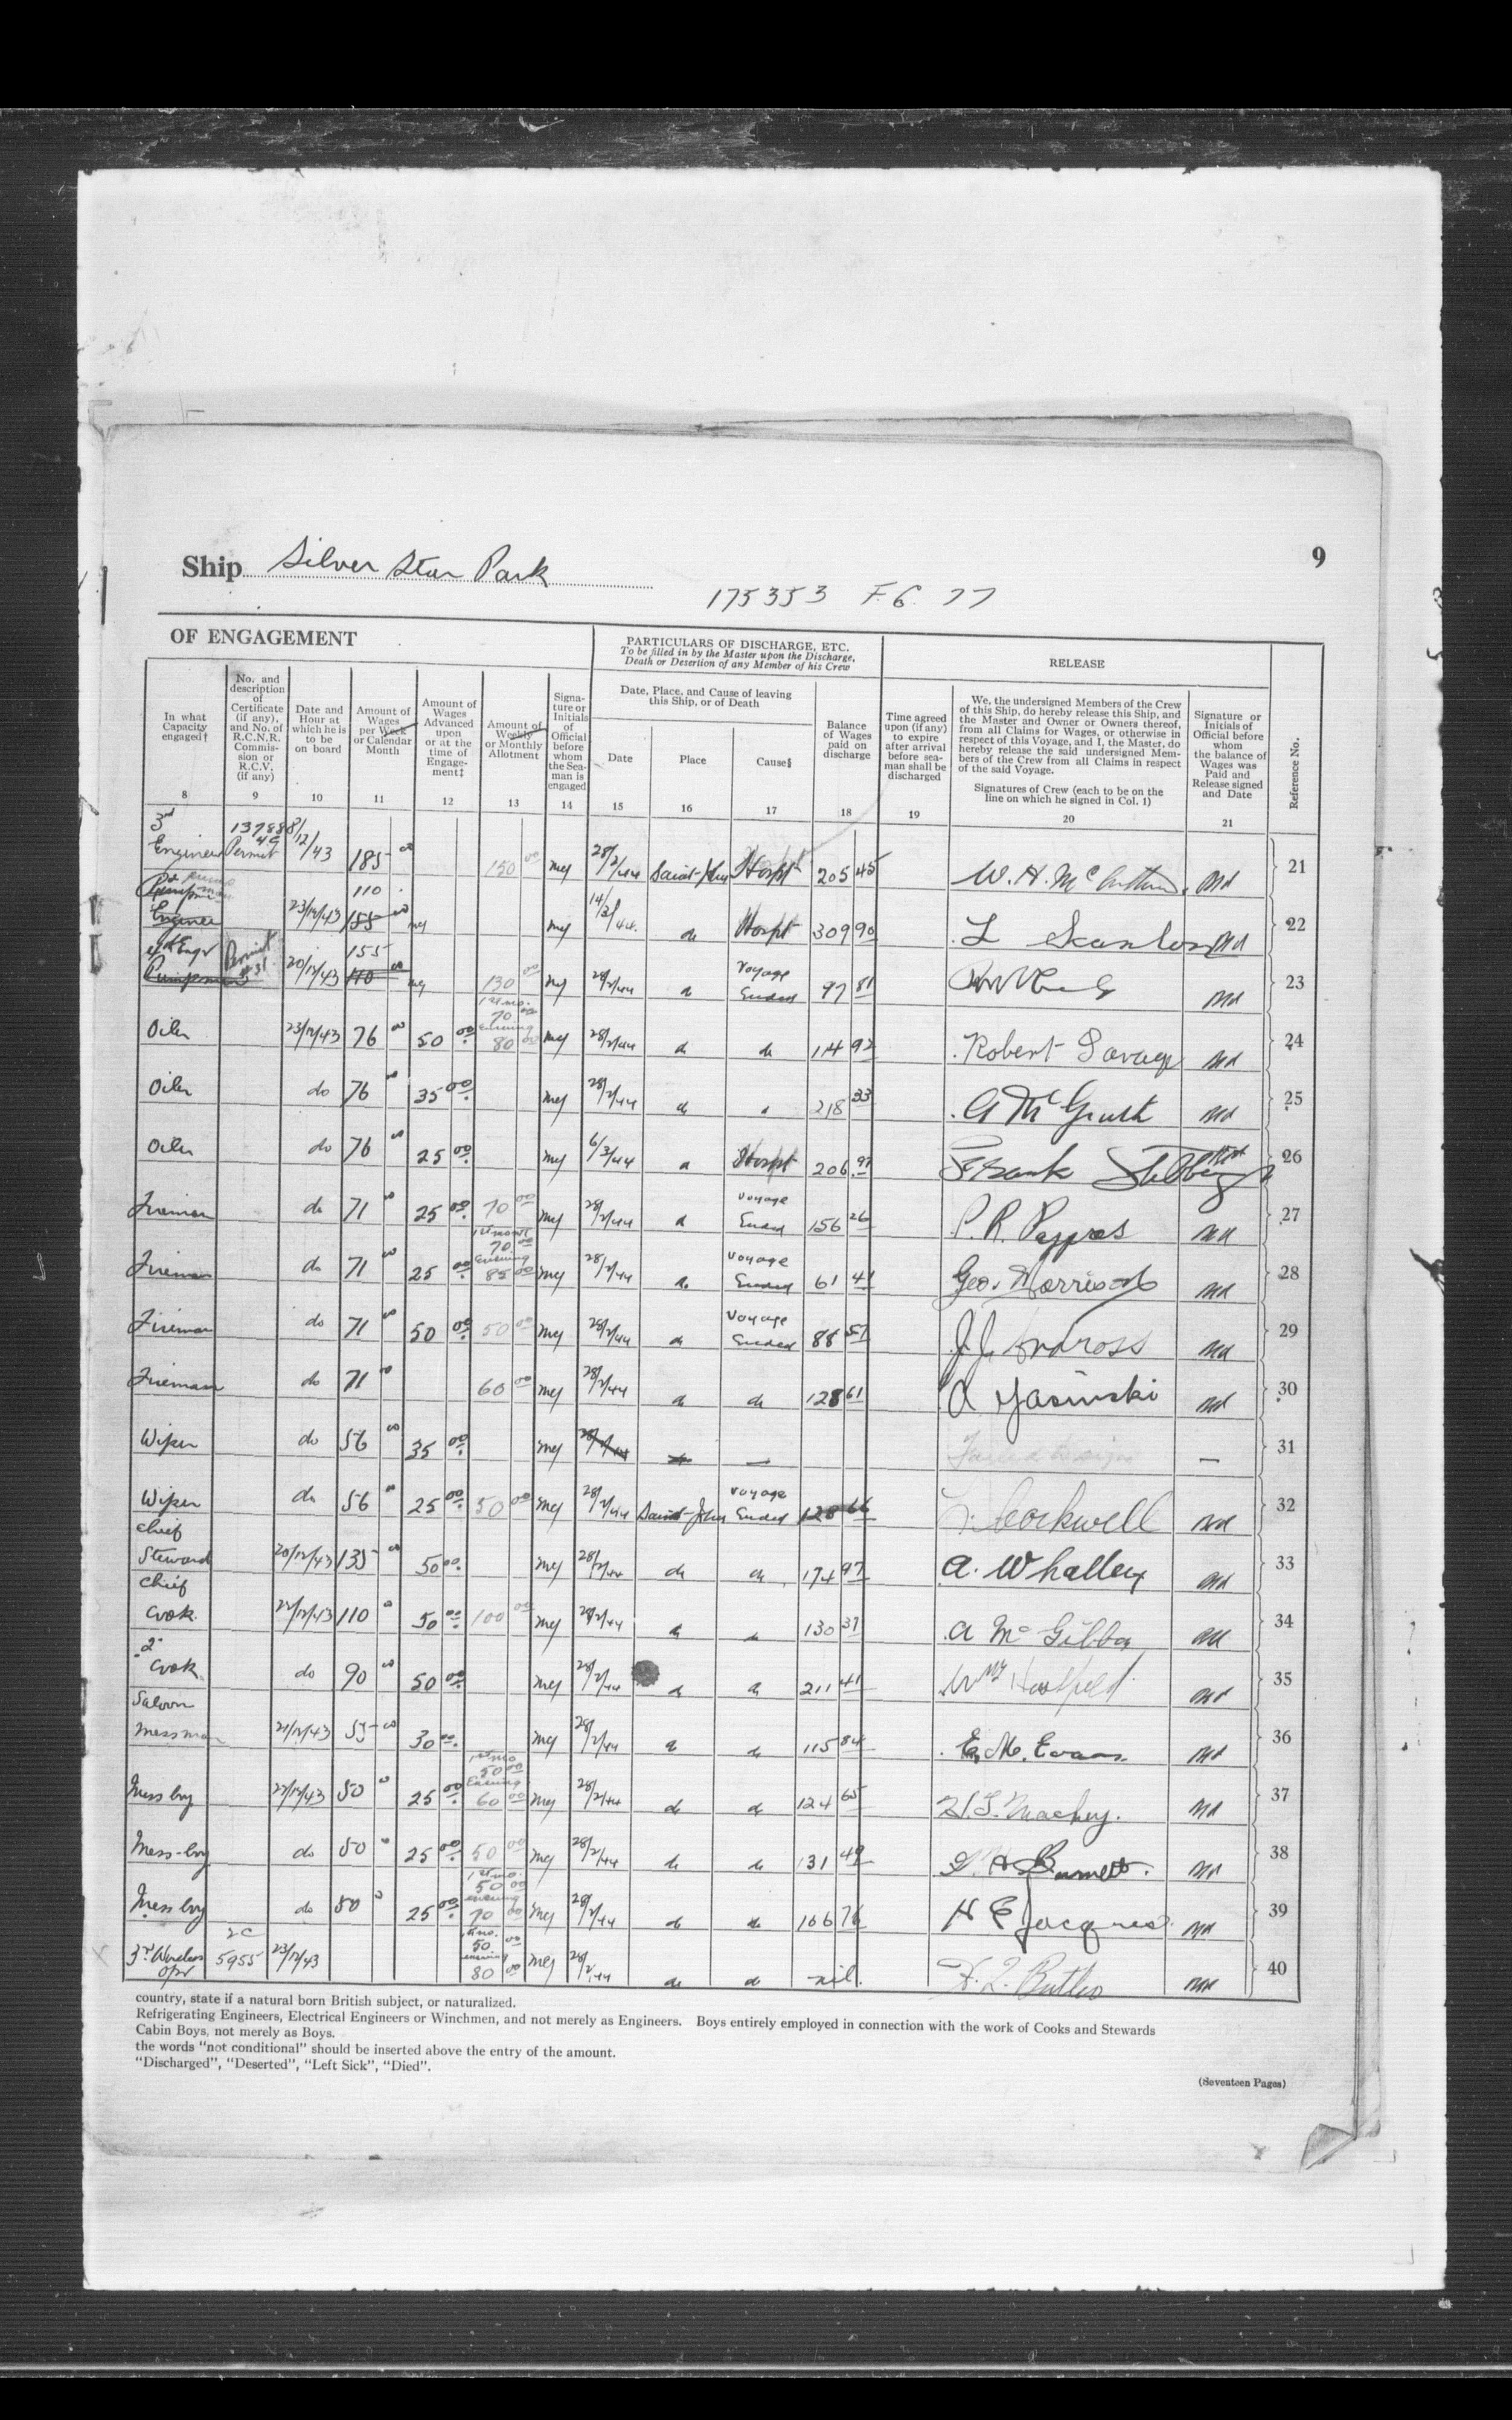 Ship Silver Star Park
9
175353 F.6. 77
OF ENGAGEMENT
PARTICULARS OF DISCHARGE, ETC.
To be filled in by the Master upon the Discharge,
Death or Desertion of any Member of his Crew
RELEASE
In what
Capacity
engaged†
8
No. and
description
of
Certificate
(if any),
and No. of
R.C.N.R.
Commis-
sion or
R.C.V.
(if any)
9
Date and
Hour at
which he is
to be
on board
10
Amount of
Wages
per Week
or Calendar
Month
11
Amount of
Wages
Advanced
upon
or at the
time of
Engage-
ment‡
12
Amount of
Weekly
or Monthly
Allotment
13
Signa-
ture or
Initials
of
Official
before
whom
the Sea-
man is
engaged
14
Date, Place, and Cause of leaving
this Ship, or of Death
Date
15
Place
16
Cause§
17
Balance
of Wages
paid on
discharge
18
Time agreed
upon (if any)
to expire
after arrival
before sea-
man shall be
discharged
19
We, the undersigned Members of the Crew
of this Ship, do hereby release this Ship, and
the Master and Owner or Owners thereof,
from all Claims for Wages, or otherwise in
respect of this Voyage, and I, the Master, do
hereby release the said undersigned Mem-
bers of the Crew from all Claims in respect
of the said Voyage.
Signatures of Crew (each to be on the
line on which he signed in Col. 1)
20
Signature or
Initials of
Official before
whom
the balance of
Wages was
Paid and
Release signed
and Date
21
Reference No.
3rd Engineer Permit 12/43 185 00 150 00 28/2/44 Saint-John Hospt 205 45 W. H. 21
Engineer 23/12/43 110 155 00 14/3/44 do Hospt 309 90 L Scanlon 22
4th Engr Pumpman Permit 20/12/43 155 110 00 130 00 28/2/44 Voyage Ended 97 81 23
Oiler 23/12/43 76 00 50 00 1st mo. 70 00 ensuing 80 00 28/2/44 do 114 92 Robert Savage 24
Oiler do 76 00 35 00 28/2/44 218 33 25
Oiler do 76 00 25 00 6/3/44 Hospt 206 97 Frank 26
Fireman do 71 00 25 00 70 00 28/2/44 Voyage Ended 156 26 P. R. 27
Fireman do 71 00 25 00 1st month 70 00 ensuing 85 00 28/2/44 Voyage Ended 61 41 Geo. Morrison 28
Fireman do 71 00 50 00 50 00 28/2/44 Voyage Ended 88 51 J. J. Andross 29
Fireman do 71 00 60 00 28/2/44 do 128 61 A Yasinski 30
Wiper do 56 00 35 00 28/2/44 — 31
Wiper do 56 00 25 00 50 00 28/2/44 Saint-John Voyage Ended 128 66 Cockwell 32
Chief Steward 20/12/43 135 00 50 00 28/2/44 do do 174 97 A. Whalley 33
Chief Cook 110 00 50 00 100 00 28/2/44 130 37 A McGibbon 34
2 Cook do 90 00 50 00 28/2/44 211 41 35
Saloon Messman 21/12/43 55 00 30 00 28/2/44 115 84 E. M. Evans 36
Mess boy 50 00 25 00 1st mo 50 00 Ensuing 60 00 28/2/44 do do 124 65 37
Mess-boy do 50 00 25 00 50 00 28/2/44 131 49 38
Mess boy do 50 25 00 1st mo. 50 00 ensuing 70 00 28/2/44 do do 106 76 H E Jacques 39
3rd Wireless Opr 2C 5955 23/12/43 1st mo. 50 00 ensuing 80 00 28/2/44 do do nil. Butler 40
country, state if a natural born British subject, or naturalized.
Refrigerating Engineers, Electrical Engineers or Winchmen, and not merely as Engineers. Boys entirely employed in connection with the work of Cooks and Stewards
Cabin Boys, not merely as Boys.
the words "not conditional" should be inserted above the entry of the amount.
"Discharged", "Deserted", "Left Sick", "Died".
(Seventeen Pages)